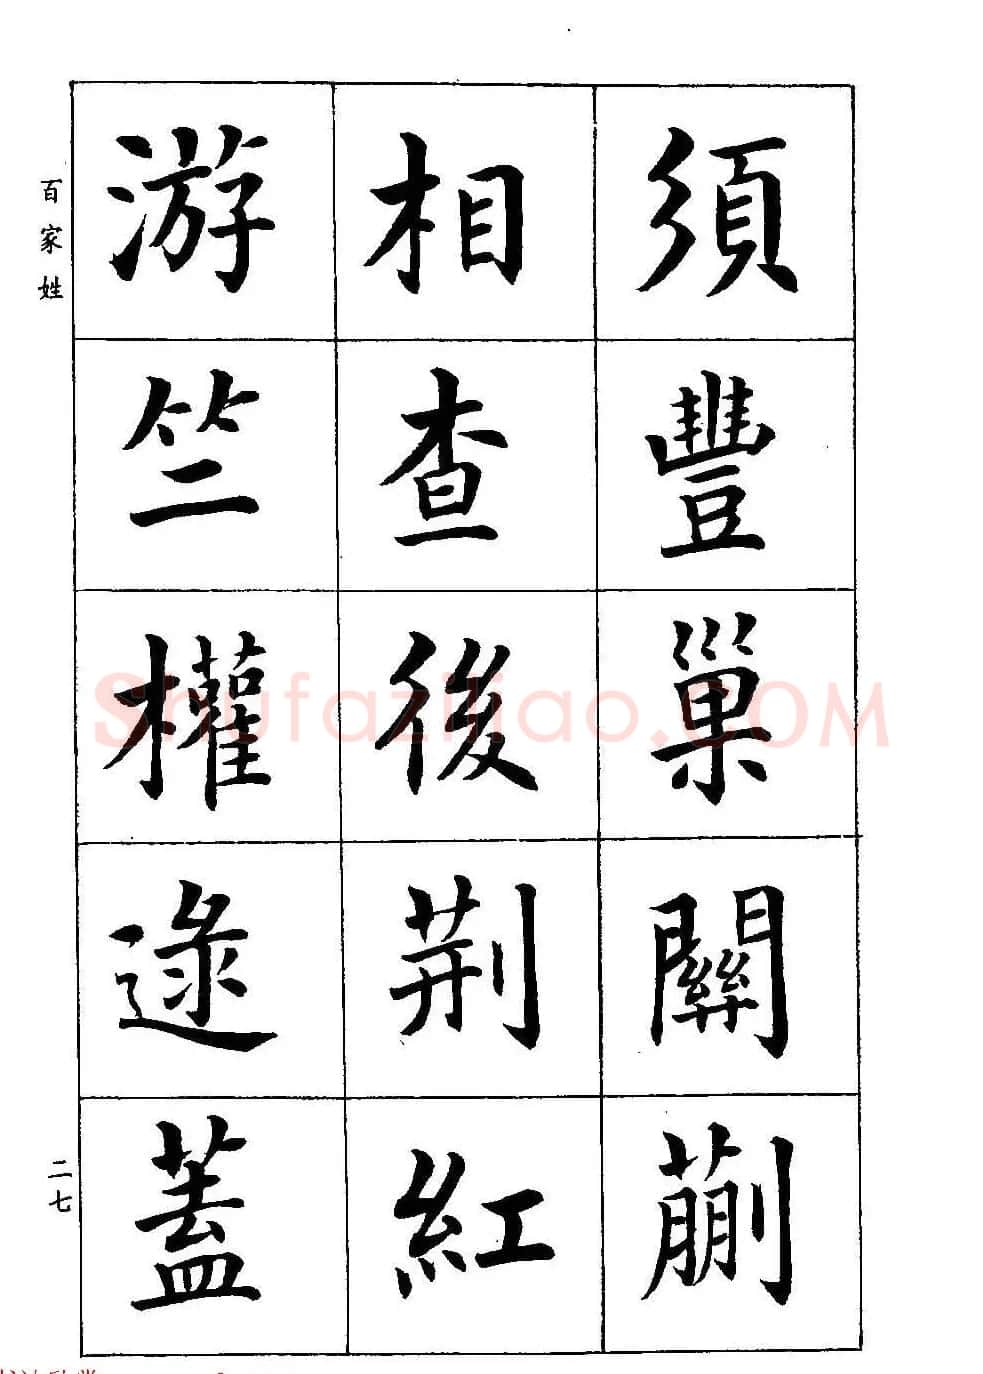 須豐巢關蒯
相查後荊紅
游竺權逯蓋
百家姓
二七
Shufaziliao.COM